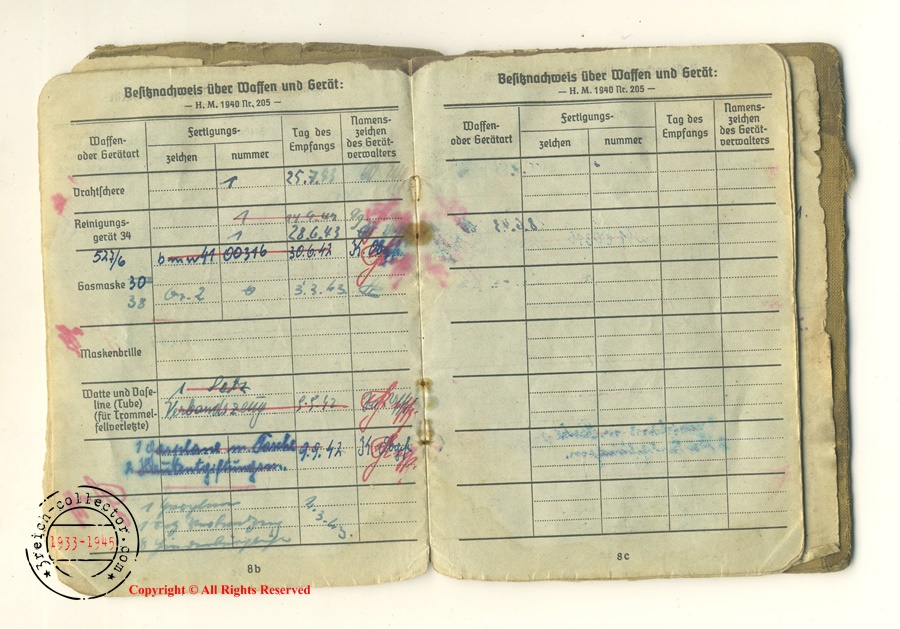 Besitznachweis über Waffen und Gerät:
— H. M. 1940 Nr. 205 —
Waffen-
oder Gerätart
Fertigungs-
zeichen
nummer
Tag des
Empfangs
Namens-
zeichen
des Gerät-
verwalters
Drahtschere 1 25.7.43
Reinigungs- 1
gerät 34 1 28.6.43
527/6 bmw41 00316 30.6.42 K
Gasmaske 30
38 Gr. 2 0 3.3.43
Maskenbrille
Watte und Vase- 1
line (Tube) Verbandszeug 9.9.42
(für Trommel-
fellverletzte)
1 Gasplane m. Tasche 9.9.42 K
2 Hautentgiftungsm.
1 Gasplane 2.3.43
1
8b
Besitznachweis über Waffen und Gerät:
— H. M. 1940 Nr. 205 —
Waffen-
oder Gerätart
Fertigungs-
zeichen
nummer
Tag des
Empfangs
Namens-
zeichen
des Gerät-
verwalters
8c
3reich-collector.com
1933-1945
Copyright © All Rights Reserved